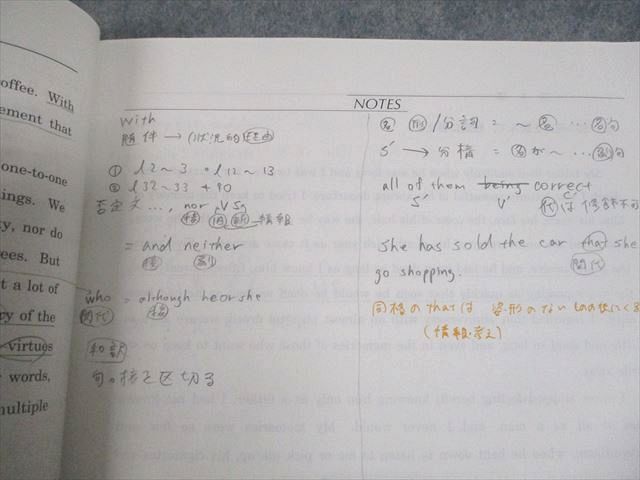 offee. With
ement that
one-to-one
ings. We
y, nor do
ees. But
t a lot of
cy of the
virtues
words,
multiple
NOTES
with
随伴 → (状況的理由
① l2~3 . l12~13
② l32~33 + 90
否定文 … nor V S
接 倒 新 情報
= and neither
接 副
who = although he or she
関代 接
和訳
句。接で区切る
名 形/分詞 = ~ 名 … 名句
S' → 分構 = 名が~ … 副句
all of them being correct
S' V' C'
代は修飾不可
She has sold the car that she
go shopping.
関代
同格のthatは 姿・形のないもの
(情報・考え)